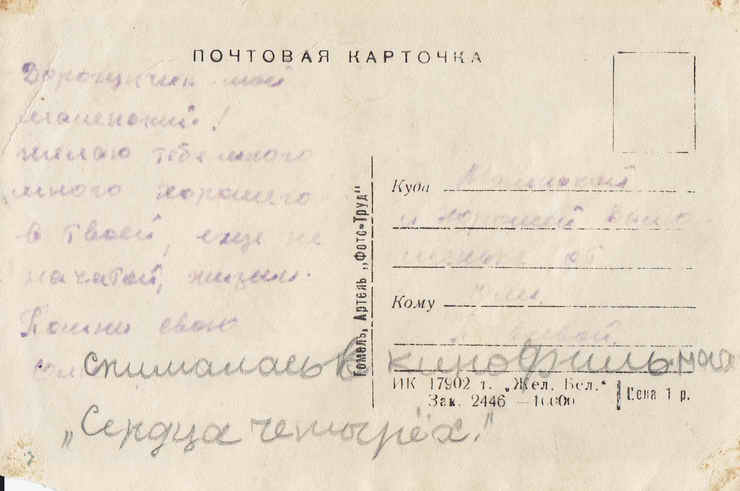 ПОЧТОВАЯ КАРТОЧКА
мой
маленький!
желаю тебе много
много хорошего
в твоей, еще не
начатой, жизни.
Помни свою
Куда
и хорошей
от
Кому
Гомель, Артель „Фото-Труд"
снималась в кинофильмах
„Сердца четырёх."
ИК 17902 т. „Жел. Бел."
Зак. 2446 — 10000
Цена 1 р.